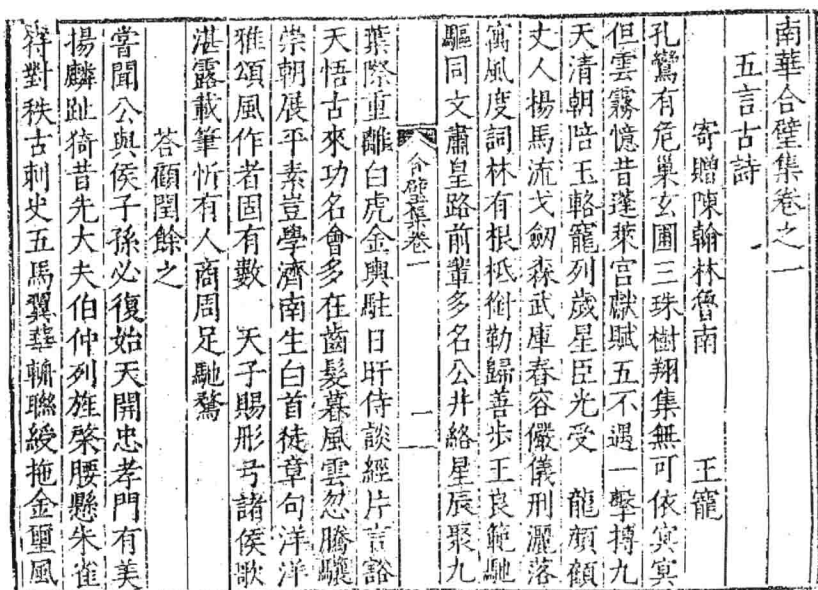 南華合璧集卷之一
五言古詩
寄贈陳翰林魯南 王寵
孔鸞有危巢玄圃三珠樹翔集無可依㝠㝠
但雲霧憶昔蓬萊宫獻賦五不遇一擊摶九
天清朝陪玉輅寵列歲星臣光受 龍顔顧
丈人揚馬流戈劒森武庫春容儼儀刑灑落
寓風度詞林有根柢銜勒歸善步王良範馳
驅同文蕭皇路前輩多名公井絡星辰聚九
合璧集卷一 一
葉際重離白虎金輿駐日旰侍談經片言豁
天悟古來功名會多在齒髮暮風雲忽騰驤
崇朝展平素豈學濟南生白首徒章句洋洋
雅頌風作者固有數 天子賜彤弓諸侯歌
湛露載筆忻有人商周足馳騖
荅顧閏餘之
嘗聞公與侯子孫必復始天開忠孝門有美
揚麟趾猗昔先大夫伯仲列旌棨腰懸朱雀
符對秩古刺史五馬翼華輈聯綬拖金璽風